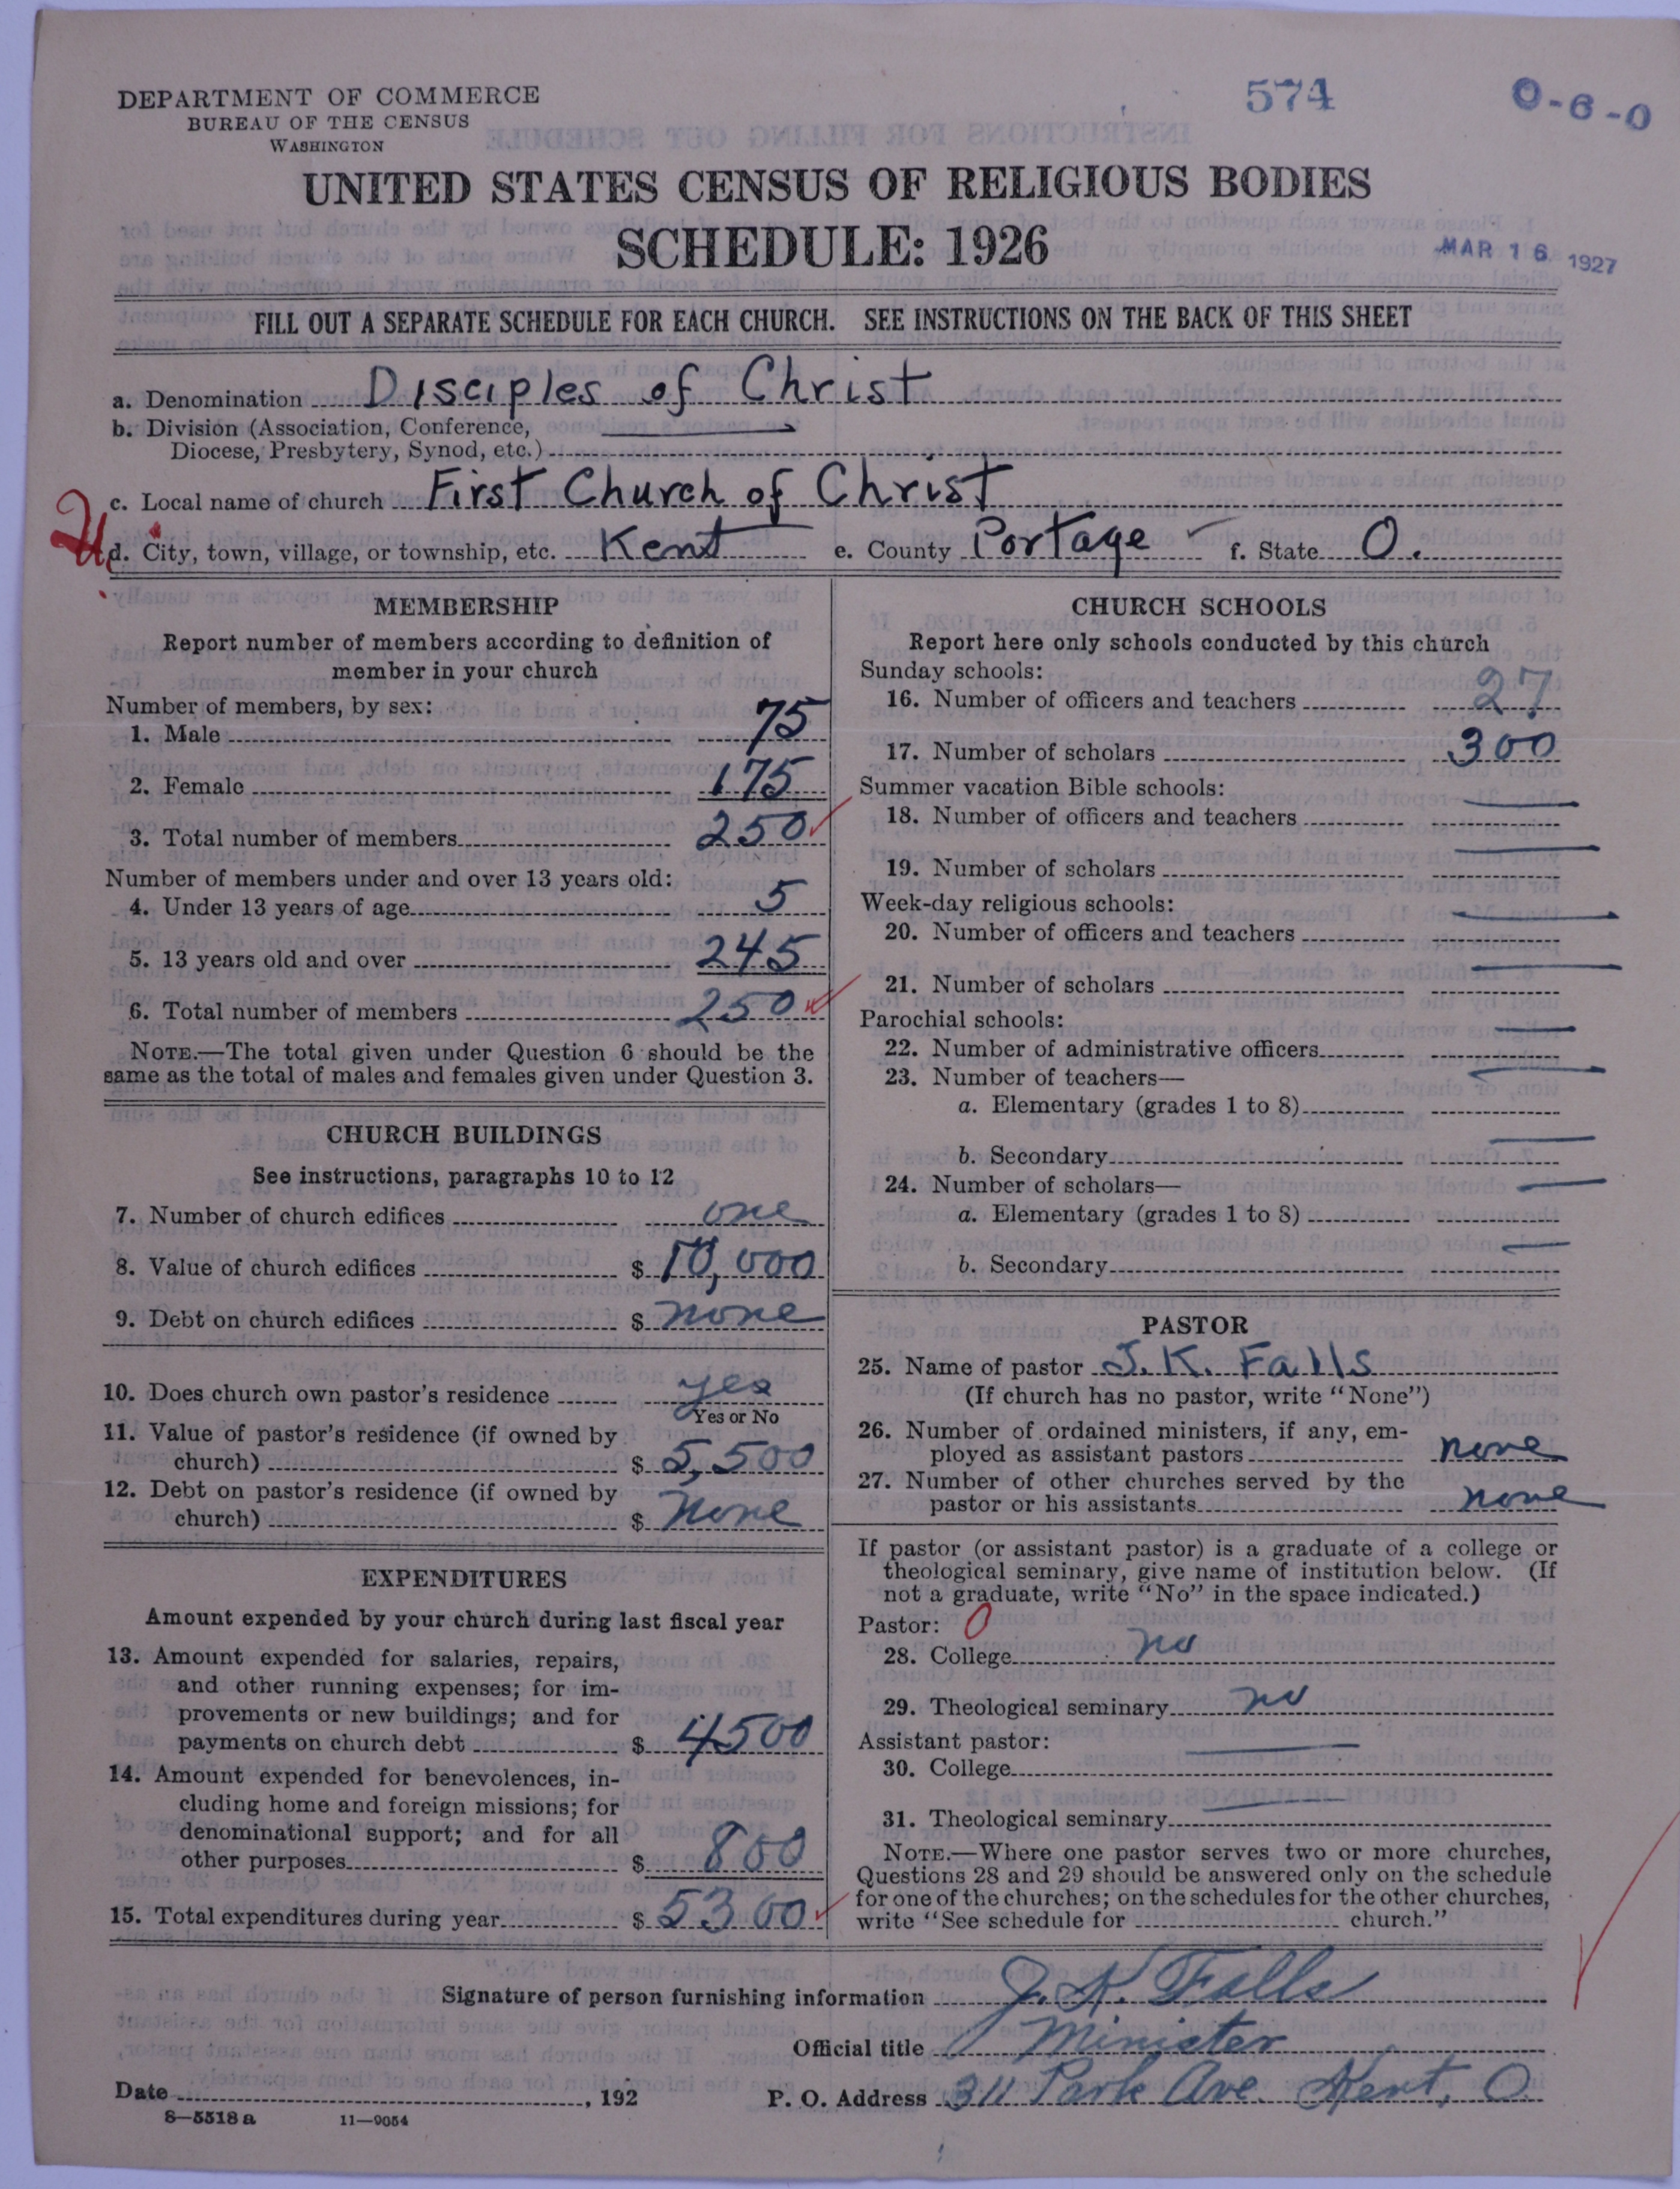 574
O-6-0
DEPARTMENT OF COMMERCE
BUREAU OF THE CENSUS
WASHINGTON
UNITED STATES CENSUS OF RELIGIOUS BODIES
SCHEDULE: 1926
MAR 16 1927
FILL OUT A SEPARATE SCHEDULE FOR EACH CHURCH. SEE INSTRUCTIONS ON THE BACK OF THIS SHEET
a. Denomination Disciples of Christ
b. Division (Association, Conference,
Diocese, Presbytery, Synod, etc.)
c. Local name of church First Church of Christ
d. City, town, village, or township, etc. Kent e. County Portage f. State O.
MEMBERSHIP
Report number of members according to definition of
member in your church
Number of members, by sex:
1. Male 75
2. Female 175
3. Total number of members 250
Number of members under and over 13 years old:
4. Under 13 years of age 5
5. 13 years old and over 245
6. Total number of members 250
NOTE.—The total given under Question 6 should be the
same as the total of males and females given under Question 3.
CHURCH BUILDINGS
See instructions, paragraphs 10 to 12
7. Number of church edifices one
8. Value of church edifices $ 10,000
9. Debt on church edifices $ none
10. Does church own pastor's residence yes
Yes or No
11. Value of pastor's residence (if owned by
church) $ 5,500
12. Debt on pastor's residence (if owned by
church) $ none
EXPENDITURES
Amount expended by your church during last fiscal year
13. Amount expended for salaries, repairs,
and other running expenses; for im-
provements or new buildings; and for
payments on church debt $ 4500
14. Amount expended for benevolences, in-
cluding home and foreign missions; for
denominational support; and for all
other purposes $ 800
15. Total expenditures during year $ 5300
CHURCH SCHOOLS
Report here only schools conducted by this church
Sunday schools:
16. Number of officers and teachers 27
17. Number of scholars 300
Summer vacation Bible schools:
18. Number of officers and teachers
19. Number of scholars
Week-day religious schools:
20. Number of officers and teachers
21. Number of scholars
Parochial schools:
22. Number of administrative officers
23. Number of teachers—
a. Elementary (grades 1 to 8)
b. Secondary
24. Number of scholars—
a. Elementary (grades 1 to 8)
b. Secondary
PASTOR
25. Name of pastor J. K. Falls
(If church has no pastor, write "None")
26. Number of ordained ministers, if any, em-
ployed as assistant pastors none
27. Number of other churches served by the
pastor or his assistants none
If pastor (or assistant pastor) is a graduate of a college or
theological seminary, give name of institution below. (If
not a graduate, write "No" in the space indicated.)
Pastor: 0
28. College no
29. Theological seminary no
Assistant pastor:
30. College
31. Theological seminary
NOTE.—Where one pastor serves two or more churches,
Questions 28 and 29 should be answered only on the schedule
for one of the churches; on the schedules for the other churches,
write "See schedule for church."
Signature of person furnishing information J. K. Falls
Official title Minister
Date , 192 P. O. Address 311 Park Ave Kent, O
8—5518 a 11—9054